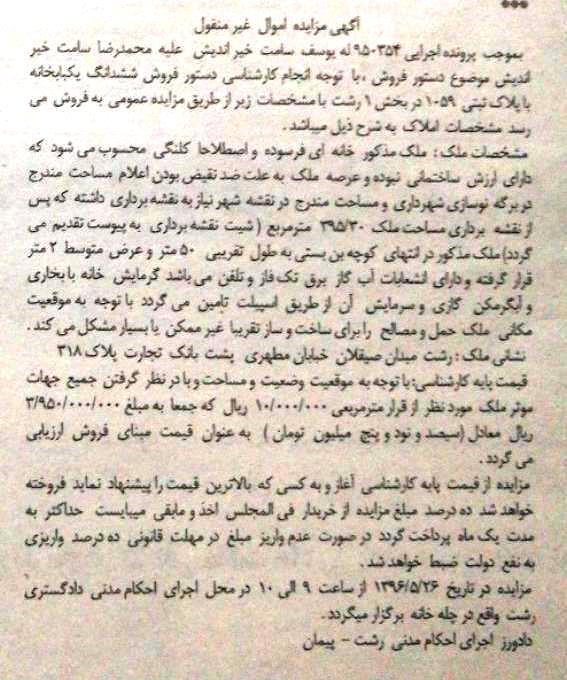 ***
آگهی مزایده اموال غیر منقول
بموجب پرونده اجرایی ۹۵۰۳۵۴ له یوسف سامت خیر اندیش علیه محمدرضا سامت خیر
اندیش موضوع دستور فروش ، با توجه انجام کارشناسی دستور فروش ششدانگ یکبابخانه
با پلاک ثبتی ۱۰۵۹ در بخش ۱ رشت با مشخصات زیر از طریق مزایده عمومی به فروش می
رسد مشخصات املاک به شرح ذیل میباشد .
مشخصات ملک : ملک مذکور خانه ای فرسوده و اصطلاحا کلنگی محسوب می شود که
دارای ارزش ساختمانی نبوده و عرصه ملک به علت ضد نقیض بودن اعلام مساحت مندرج
در برگه نوسازی شهرداری و مساحت مندرج در نقشه شهر نیاز به نقشه برداری داشته که پس
از نقشه برداری مساحت ملک ۳۹۵/۳۰ مترمربع ( شیت نقشه برداری به پیوست تقدیم می
گردد) ملک مذکور در انتهای کوچه بن بستی به طول تقریبی ۵۰ متر و عرض متوسط ۲ متر
قرار گرفته و دارای انشعابات آب گاز برق تک فاز و تلفن می باشد گرمایش خانه با بخاری
و آبگرمکن گازی و سرمایش آن از طریق اسپیلت تامین می گردد با توجه به موقعیت
مکانی ملک حمل و مصالح را برای ساخت و ساز تقریبا غیر ممکن یا بسیار مشکل می کند .
نشانی ملک : رشت میدان صیقلان خیابان مطهری پشت بانک تجارت پلاک ۳۱۸
قیمت پایه کارشناسی: با توجه به موقعیت وضعیت و مساحت و با در نظر گرفتن جمیع جهات
موثر ملک مورد نظر از قرار مترمربعی ۱۰/۰۰۰/۰۰۰ ریال که جمعا به مبلغ ۳/۹۵۰/۰۰۰/۰۰۰
ریال معادل (سیصد و نود و پنج میلیون تومان ) به عنوان قیمت مبنای فروش ارزیابی
می گردد .
مزایده از قیمت پایه کارشناسی آغاز و به کسی که بالاترین قیمت را پیشنهاد نماید فروخته
خواهد شد ده درصد مبلغ مزایده از خریدار فی المجلس اخذ و مابقی میبایست حداکثر به
مدت یک ماه پرداخت گردد در صورت عدم واریز مبلغ در مهلت قانونی ده درصد واریزی
به نفع دولت ضبط خواهد شد .
مزایده در تاریخ ۱۳۹۶/۵/۲۶ از ساعت ۹ الی ۱۰ در محل اجرای احکام مدنی دادگستری
رشت واقع در چله خانه برگزار میگردد .
دادورز اجرای احکام مدنی رشت - پیمان